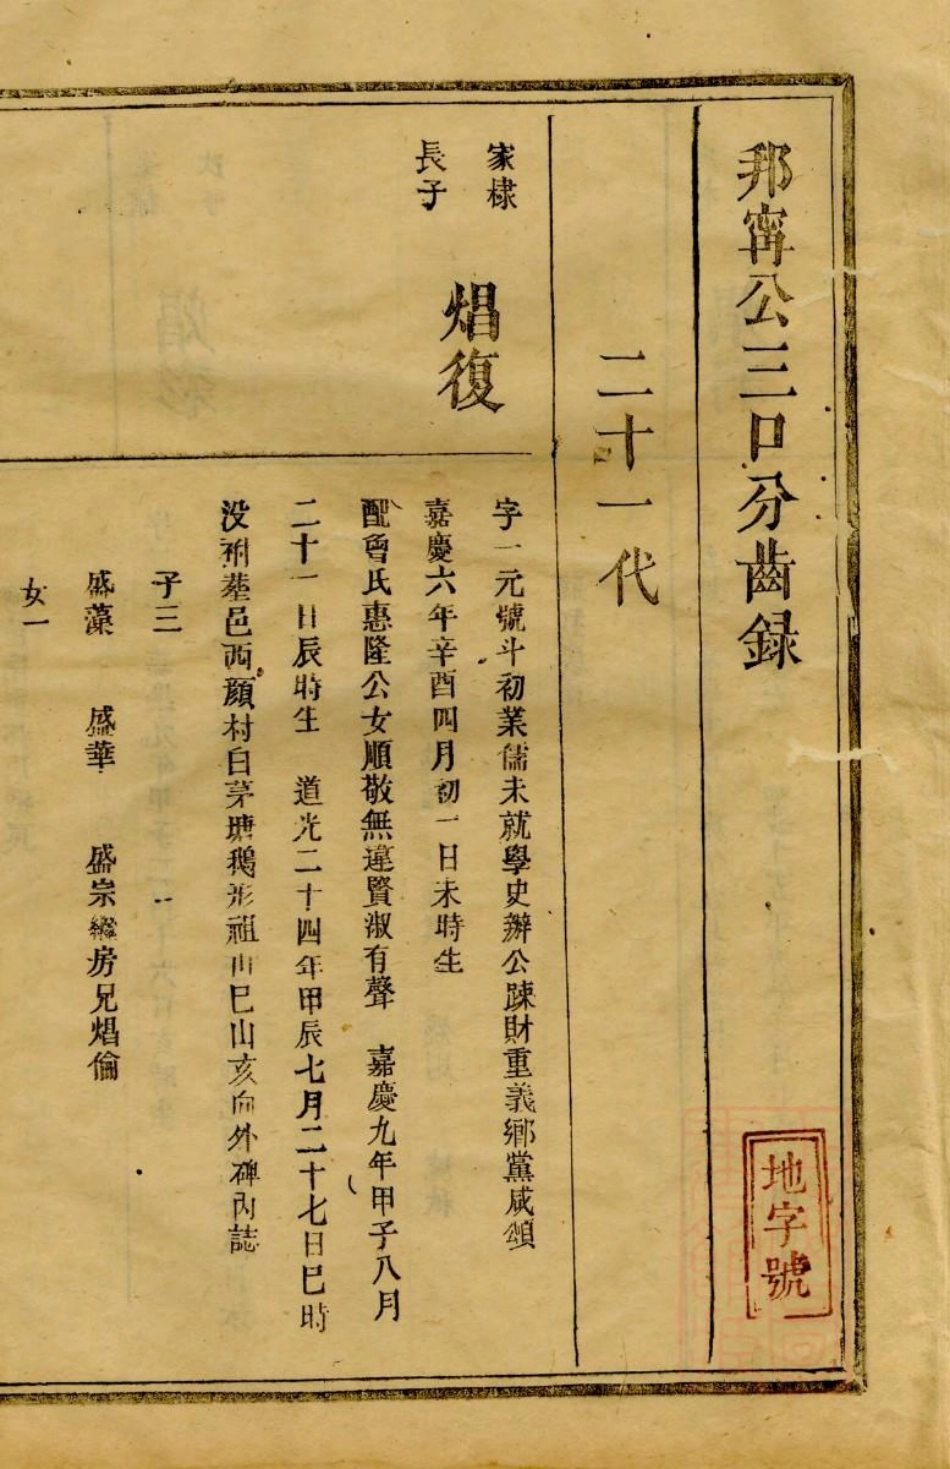 邦甯公三口分齒録
地字號
二十一代
家棣
長子
焻復
字一元號斗初業儒未就學史辦公踈財重義鄉黨咸頌
嘉慶六年辛酉四月初一日未時生
配曾氏惠隆公女順敬無違賢淑有聲 嘉慶九年甲子八月
二十一日辰時生 道光二十四年甲辰七月二十七日巳時
没祔塟邑西顏村白茅塘鵝形祖山巳山亥向外碑內誌
子三
盛藻 盛華 盛宗繼房兄焻倫
女一